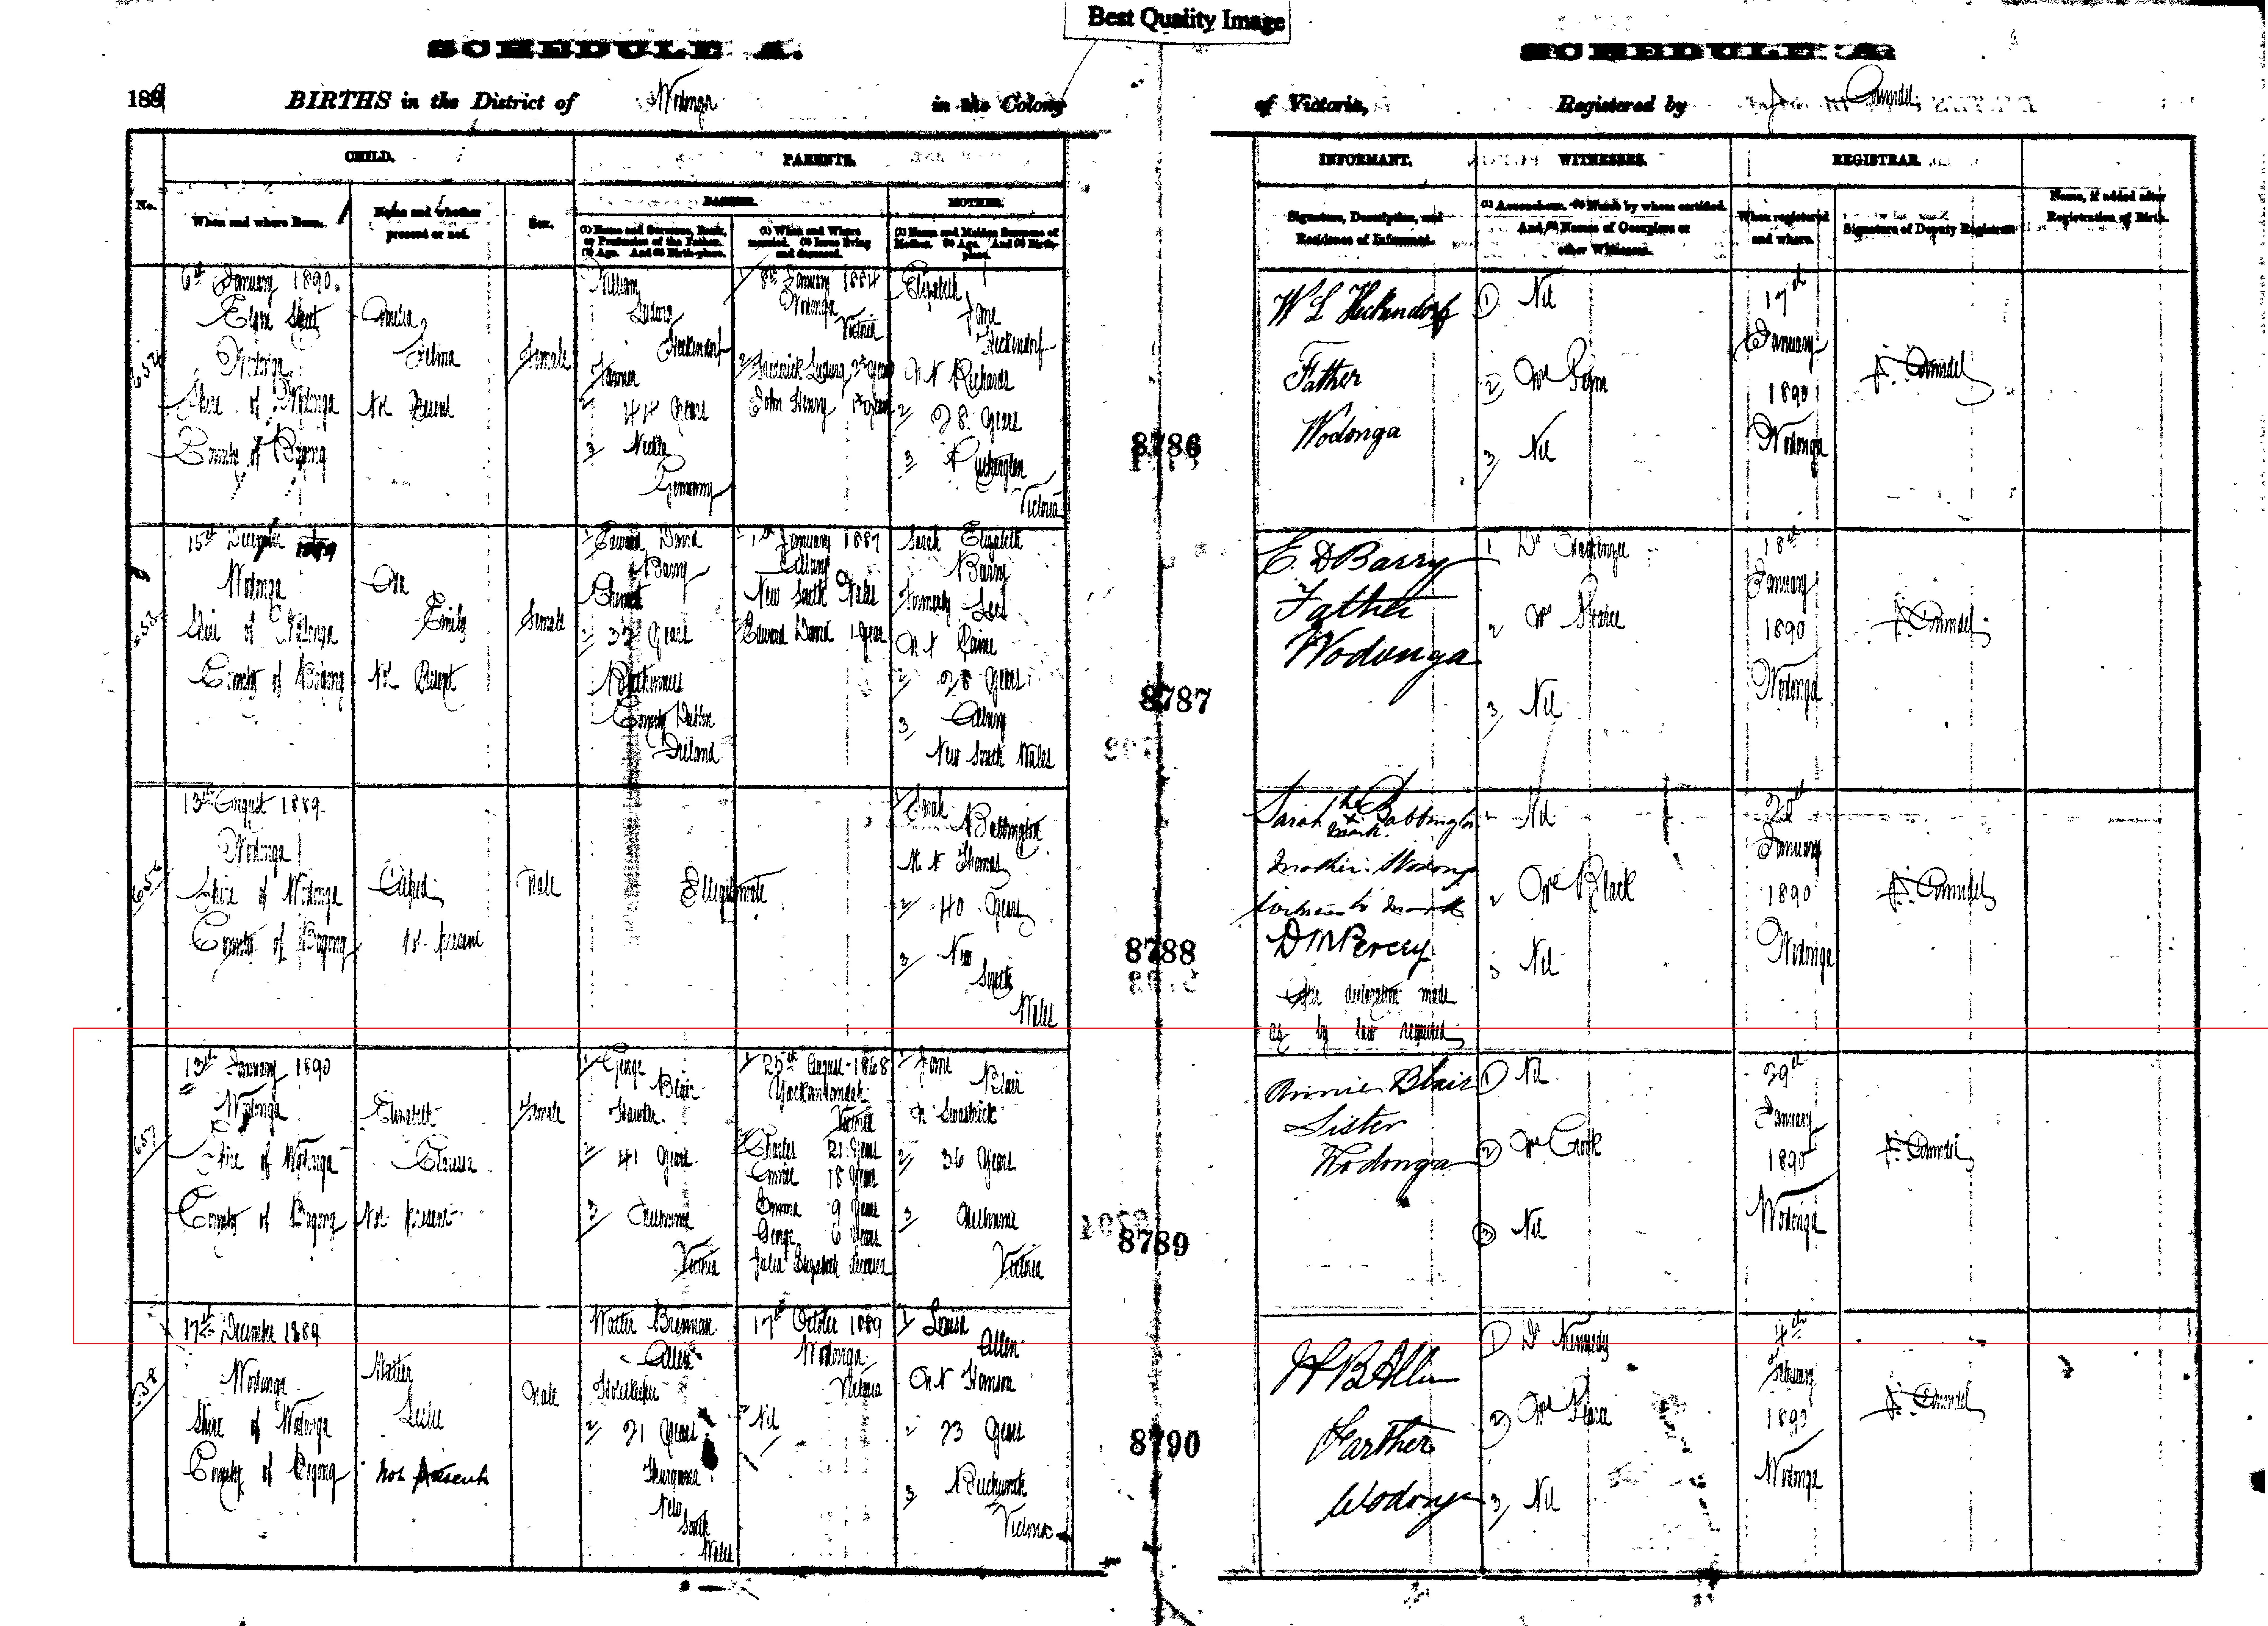 Best Quality Image
SCHEDULE A.
SCHEDULE A.
189
BIRTHS in the District of Wodonga in the Colony
of Victoria, Registered by
CHILD.
PARENTS.
INFORMANT.
WITNESSES.
REGISTRAR
No.
When and where Born.
Name and whether present or not.
Sex.
FATHER.
MOTHER.
(1) Name and Surname, Rank, or Profession of the Father. (2) Age. And (3) Birth-place.
(1) When and Where married. (2) Issue living and deceased.
(1) Name and Maiden Surname of Mother. (2) Age. And (3) Birth-place.
Signature, Description, and Residence of Informant.
(1) Accoucheur. (2) Nurse by whom certified. And, (3) Names of Occupiers or other Witnesses.
When registered and where.
Signature of Deputy Registrar.
Name, if added after Registration of Birth.
654
6th January 1890.
Street
Wodonga
Shire of Wodonga
County of Bogong
Amelia
Selma
Not Present
Female
William
Ludwig
Heckendorf
Farmer
2 44 Years
3
Germany
1 8th January 1884
Wodonga
Victoria
2 Frederick Ludwig
John Henry
Elizabeth
Jane
Heckendorf
M N Richards
2 28 Years
3
Victoria
8786
W L Heckendorf
Father
Wodonga
1 Nil
2 Mrs
3 Nil
17th
January
1890
Wodonga
655
15th December 1889
Wodonga
Shire of Wodonga
County of Bogong
Emily
Not Present
Female
1 Edward David
Barry
Chemist
2 Years
Rathmines
County Dublin
Ireland
1st January 1887
Albury
New South Wales
Edward David 1 Year
Sarah Elizabeth
Barry
Formerly Lees
M N Paine
2 28 Years
3 Albury
New South Wales
8787
E. D Barry
Father
Wodonga
1 Dr
2 Mrs Pearce
3 Nil
18th
January
1890
Wodonga
656
13th August 1889.
Wodonga
Shire of Wodonga
County of Bogong
Alfred
Not present
Male
Illegitimate
1 Sarah
Babbington
M N Thomas
2 40 Years
3 New
South
Wales
8788
Sarah the x Babbington
mark.
mother. Wodonga
witness to mark
D M Percey
After declaration made
as by law required
1 Nil
2 Mrs Black
3 Nil
January
1890
Wodonga
657
13th January 1890
Wodonga
Shire of Wodonga
County of Bogong
Elizabeth
Clarissa
Not present
Female
1 George
Blair
Hawker
2 41 Years
3 Melbourne
Victoria
1 25th August 1868
Yackandandah
Victoria
Charles 21 Years
Annie 18 Years
Emma 9 Years
George 6 Years
Julia Elizabeth deceased
1 Jane
Blair
2 36 Years
3 Melbourne
Victoria
8789
Annie Blair
Sister
Wodonga
1 Nil
2 Mrs Crook
3 Nil
29th
January
1890
Wodonga
658
17th December 1889
Wodonga
Shire of Wodonga
County of Bogong
Leslie
Not Present
Male
Walter Brennan
Allen
Hotelkeeper
2 21 Years
Thurgoona
New
South
Wales
17th October 1889
Wodonga
Victoria
2 Nil
1 Louisa
Allen
M N
2 23 Years
3 Beechworth
Victoria
8790
W B Allen
Farther
Wodonga
1 Dr Kennedy
2 Mrs Pearce
3 Nil
4th
February
1890
Wodonga